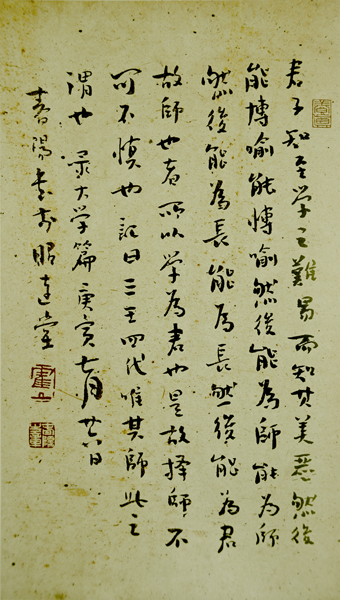 君子知至学之難易而知其美惡然後
能博喻能博喻然後能為師能为师
然後能為長能為長然後能為君
故師也者所以学為君也是故择師不
可不慎也記曰三王四代唯其師此之
謂也 录大学篇庚寅七月廿六日
春陽書於昭達堂